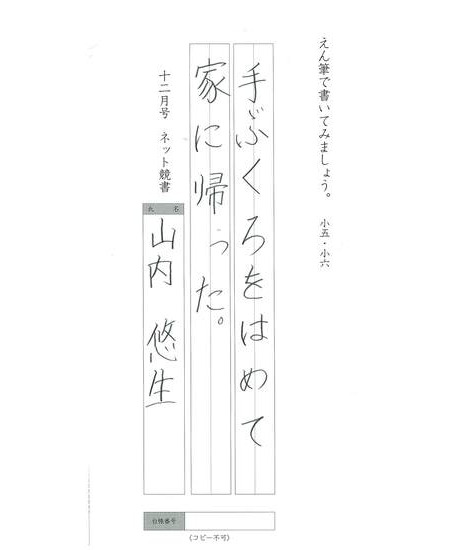 えん筆で書いてみましょう。 小五・小六
手ぶくろをはめて
家に帰った。
十二月号 ネット競書
氏名
山内 悠生
台帳番号
(コピー不可)